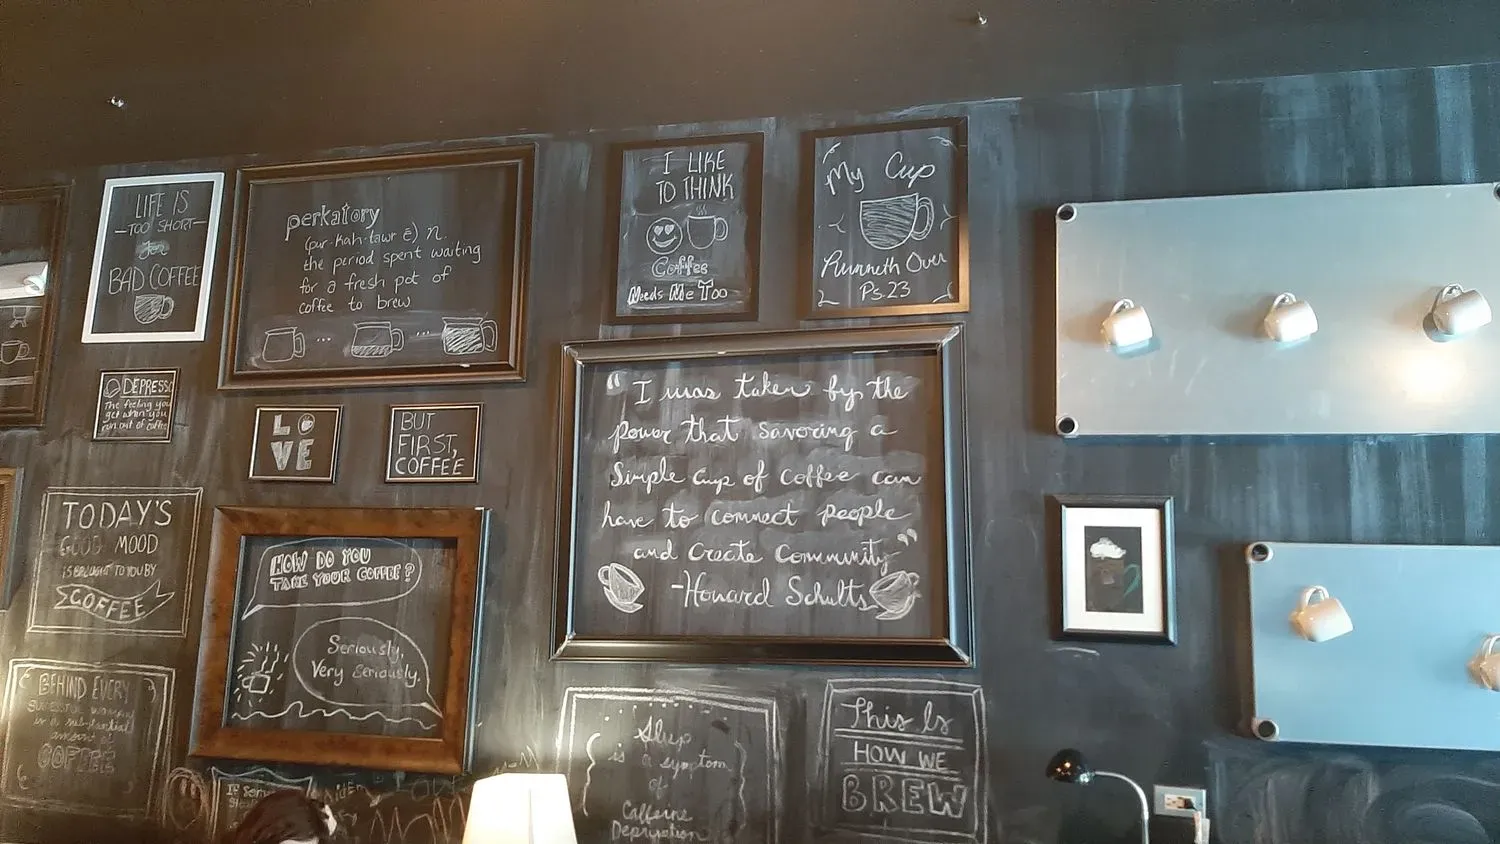 LIFE IS
TOO SHORT
for
BAD COFFEE
perkatory
(pur·kah·tawr ē) n.
the period spent waiting
for a fresh pot of
coffee to brew
...
...
I LIKE
TO THINK
Coffee
Needs Me Too
My Cup
Runneth Over
Ps.23
DEPRESSO
The feeling you
get when you
run out of coffee
LOVE
BUT
FIRST,
COFFEE
"I was taken by the
power that savoring a
Simple cup of coffee can
have to connect people
and create community"
-Howard Schults
TODAY'S
GOOD MOOD
IS BROUGHT TO YOU BY
COFFEE
HOW DO YOU
TAKE YOUR COFFEE?
Seriously,
Very Seriously.
BEHIND EVERY
SUCCESSFUL woman
is a substantial
amount of
COFFEE
Sleep
is a symptom
of
Caffeine
Deprivation
This Is
HOW WE
BREW
IF